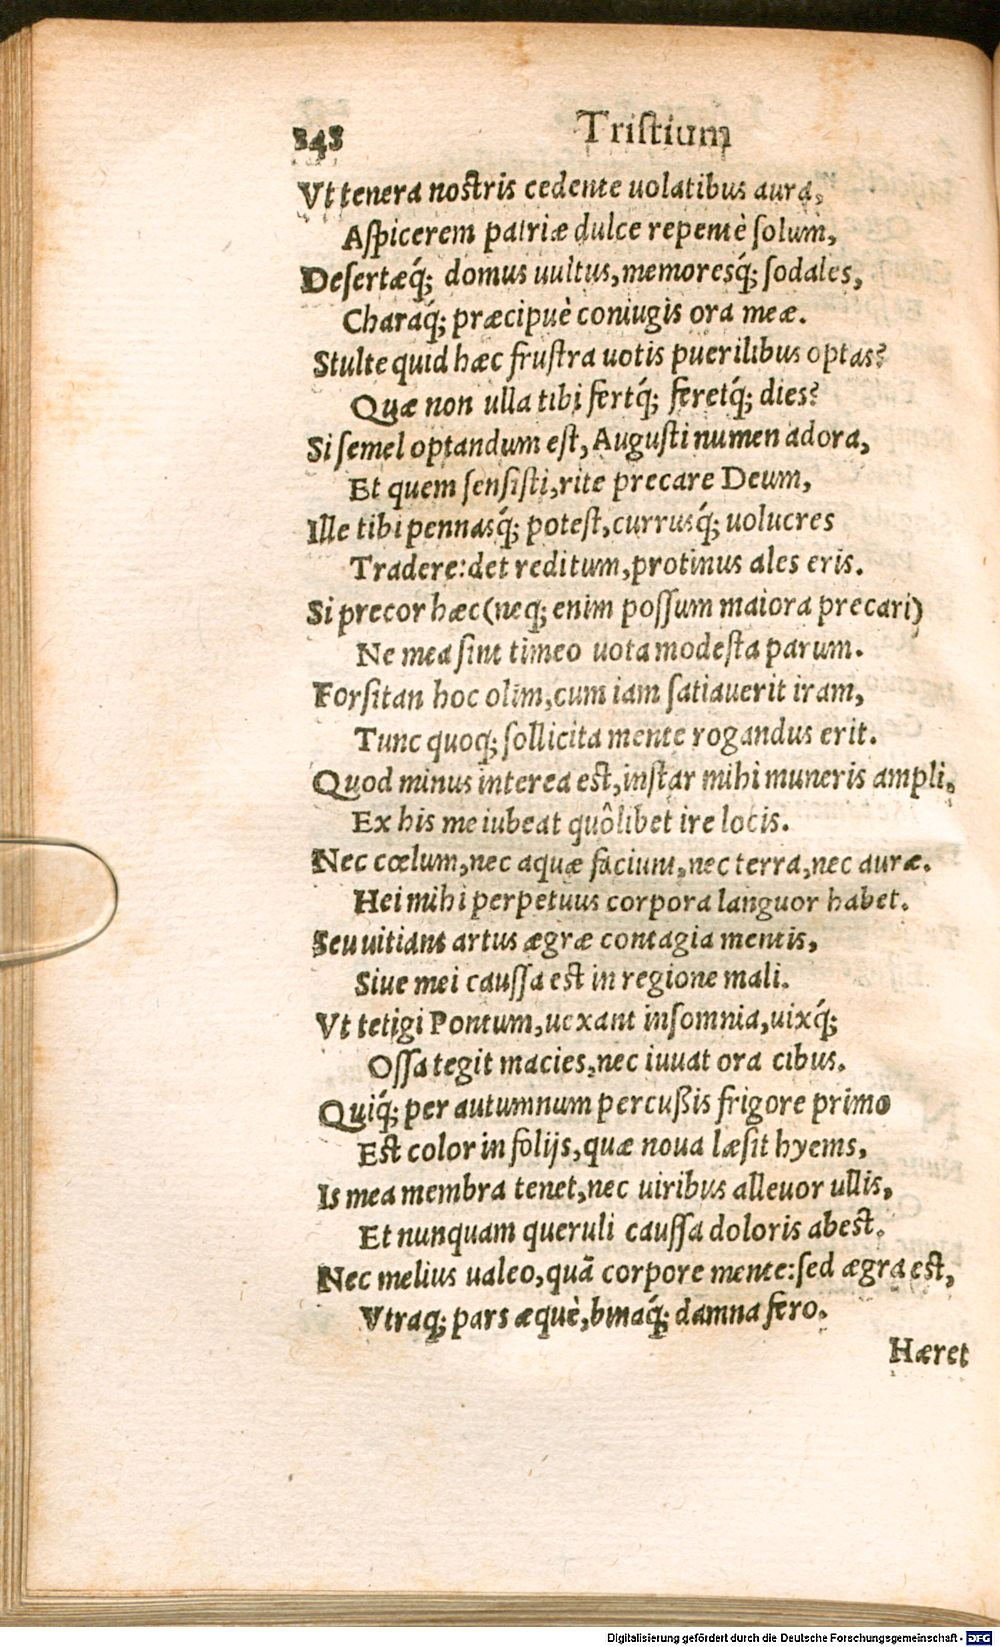 343 Triſtium
Vt tenera noſtris cedente uolatibus aura,
Aſpicerem patriæ dulce repentè ſolum,
Deſertæq́; domus uultus, memoresq́; ſodales,
Charaq́; præcipuè coniugis ora meæ.
Stulte quid hæc fruſtra uotis puerilibus optas?
Quæ non ulla tibi fertq́; feretq́; dies?
Si ſemel optandum eſt, Auguſti numen adora,
Et quem ſenſiſti, rite precare Deum,
Ille tibi pennasq́; poteſt, currusq́; uolucres
Tradere: det reditum, protinus ales eris.
Si precor hæc (neq; enim poſſum maiora precari)
Ne mea ſint timeo uota modeſta parum.
Forſitan hoc olim, cum iam ſatiauerit iram,
Tunc quoq; ſollicita mente rogandus erit.
Quod minus interea eſt, inſtar mihi muneris ampli,
Ex his me iubeat quôlibet ire locis.
Nec cœlum, nec aquæ faciunt, nec terra, nec auræ.
Hei mihi perpetuus corpora languor habet.
Seu uitiant artus ægræ contagia mentis,
Siue mei cauſſa eſt in regione mali.
Vt tetigi Pontum, uexant inſomnia, uixq́;
Oſſa tegit macies, nec iuuat ora cibus.
Quiq́; per autumnum percuſsis frigore primo
Eſt color in folijs, quæ noua læſit hyems,
Is mea membra tenet, nec uiribus alleuor ullis,
Et nunquam queruli cauſſa doloris abeſt.
Nec melius ualeo, quã corpore mente: ſed ægra eſt,
Vtraq; pars æquè, binaq́; damna fero.
Hæret
Digitalisierung gefördert durch die Deutsche Forschungsgemeinschaft - DFG